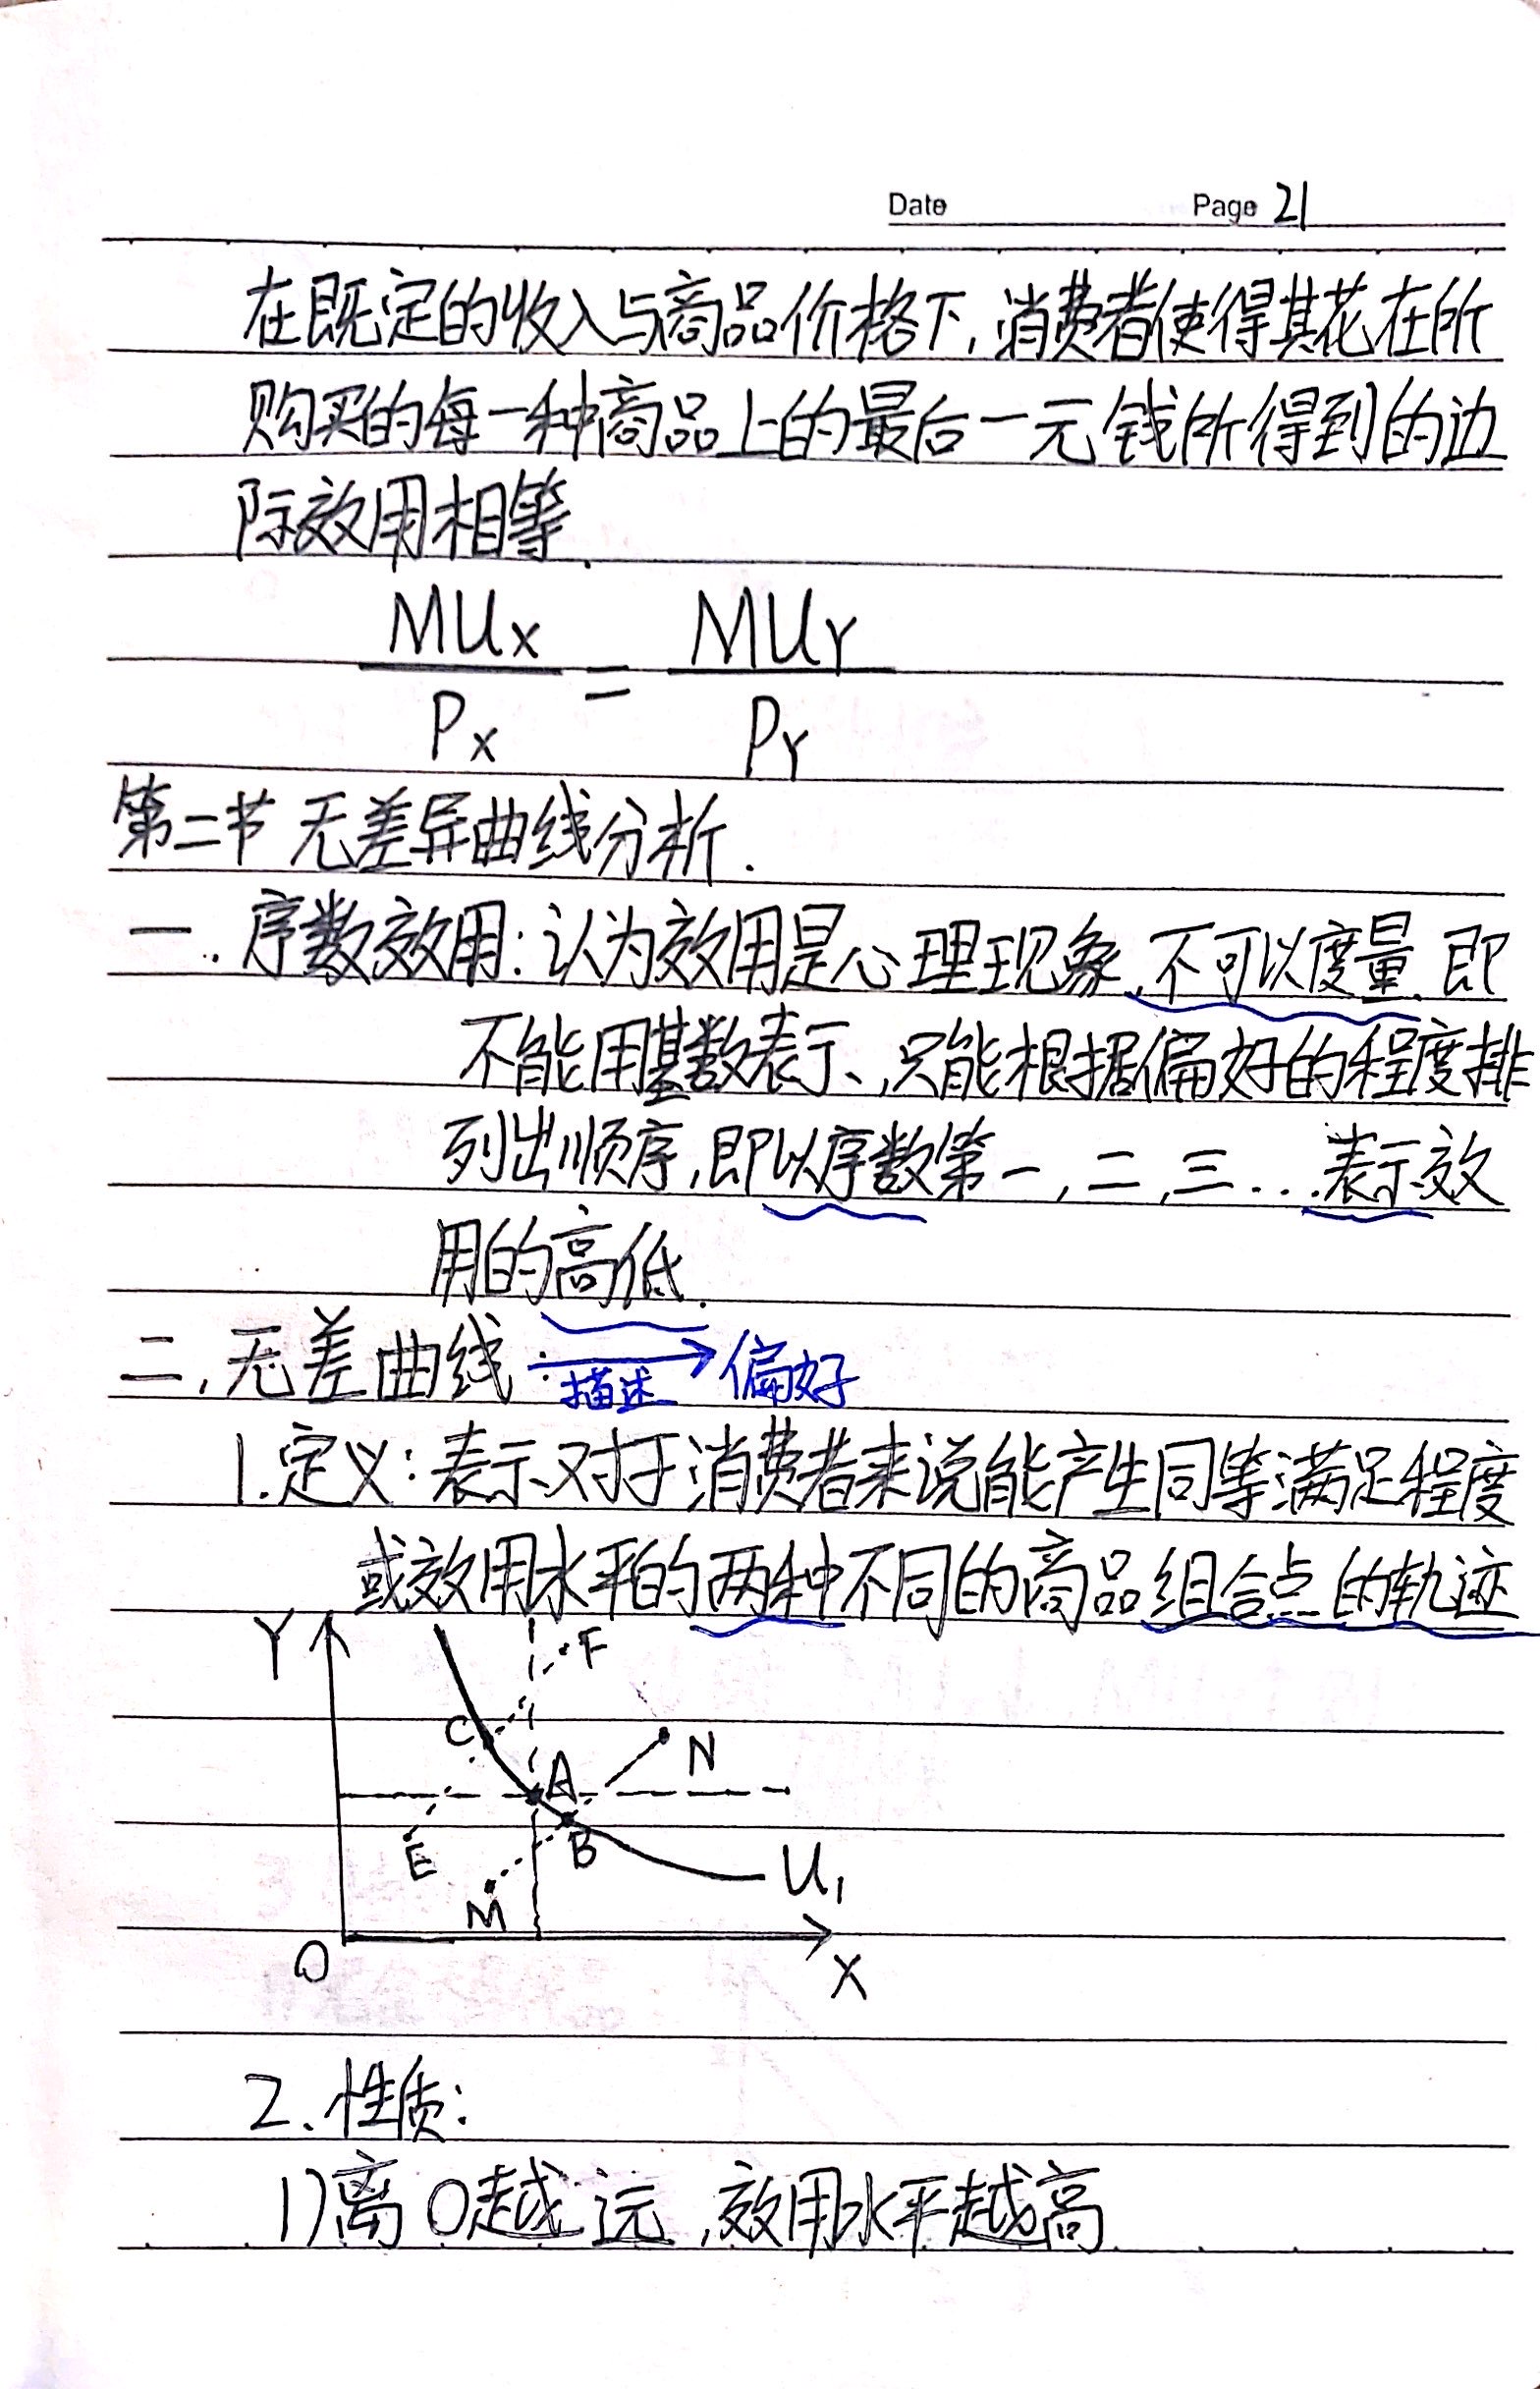 Date Page 21
在既定的收入与商品价格下,消费者使得其花在所
购买的每一种商品上的最后一元钱所得到的边
际效用相等.
MUx / Px = MUY / PY
第二节 无差异曲线分析.
一.序数效用:认为效用是心理现象,不可以度量,即
不能用基数表示,只能根据偏好的程度排
列出顺序,即以序数第一,二,三...表示效
用的高低.
二,无差曲线: 描述 → 偏好
1.定义:表示对于消费者来说能产生同等满足程度
或效用水平的两种不同的商品组合点的轨迹
Y F
C A N
E B U1
M
O X
2.性质:
1)离O越远,效用水平越高